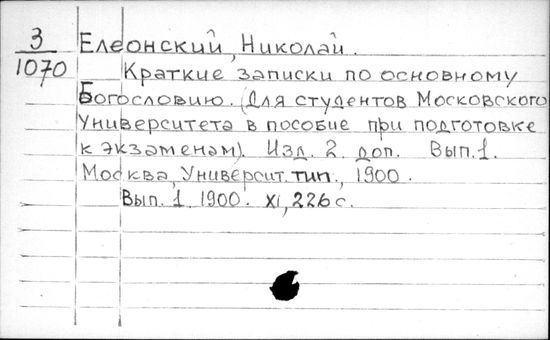 3
1070
Елеонский, Николай.
Краткие записки по основному
Богословию. (Для студентов Московского
Университета в пособие при подготовке
к экзаменам). Изд. 2 доп. Вып. 1.
Москва, Университ. тип., 1900.
Вып. 1. 1900. XI, 226 с.